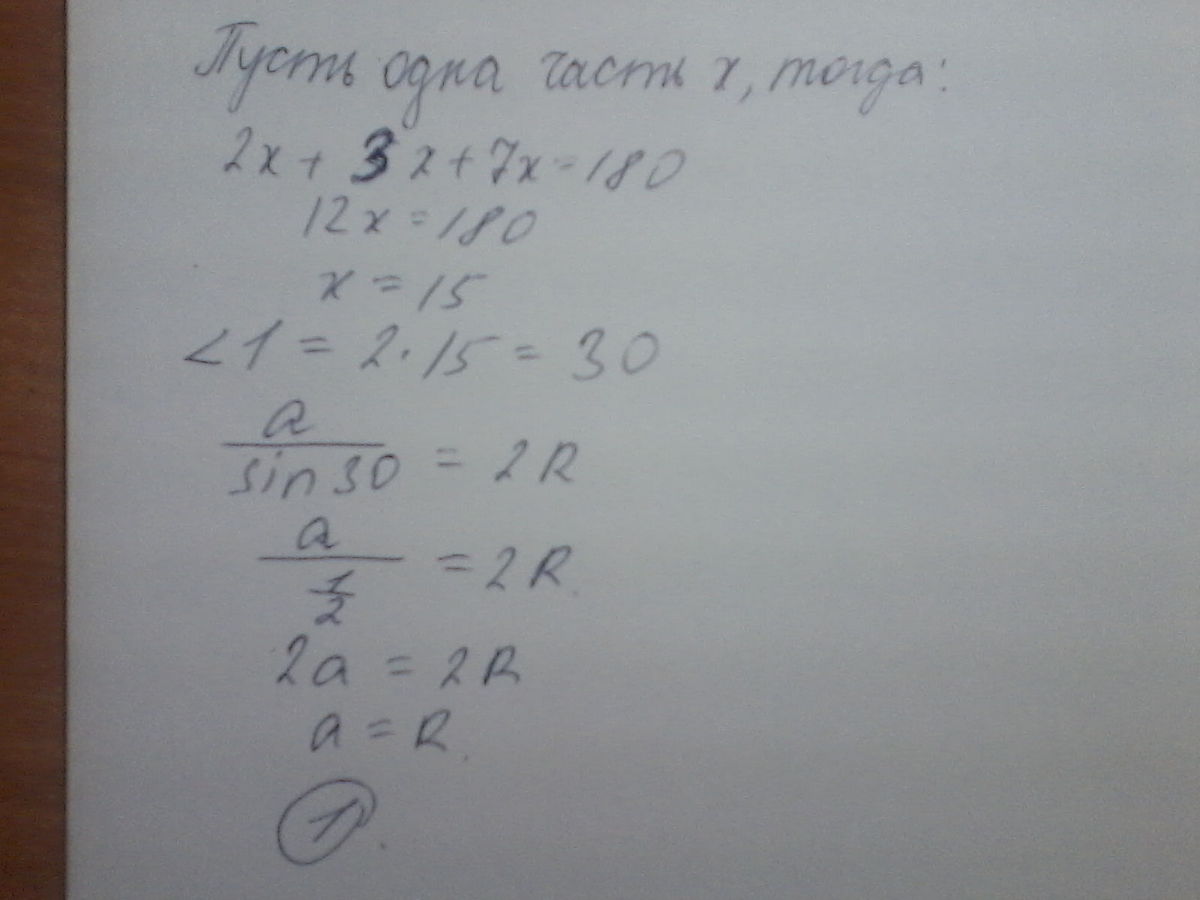 Пусть одна часть x, тогда:
2x + 3x + 7x = 180
12x = 180
x = 15
<1 = 2·15 = 30
a
sin30 = 2R
a
1/2 = 2R.
2a = 2R
a = R.
1.